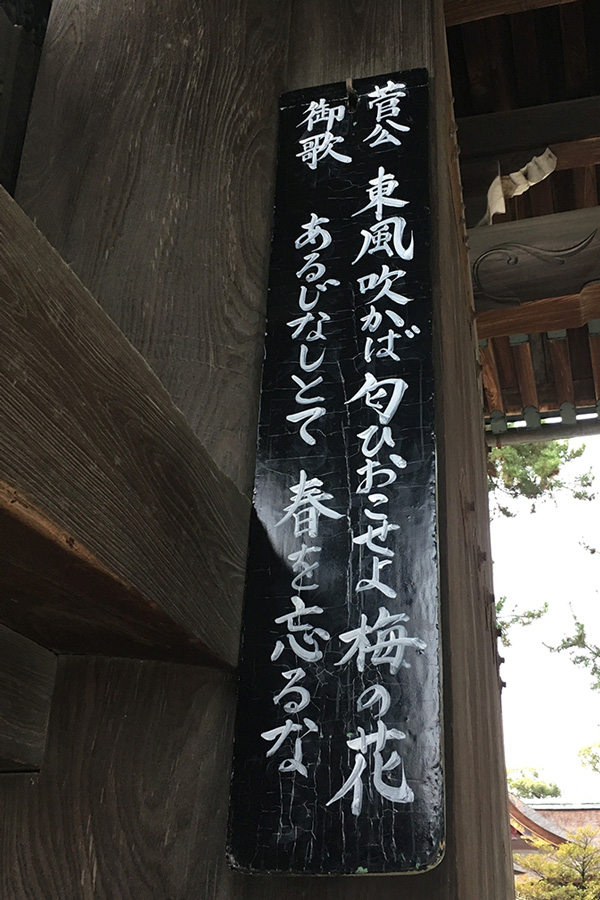 菅公 東風吹かば 匂ひおこせよ 梅の花
御歌 あるじなしとて 春を忘るな